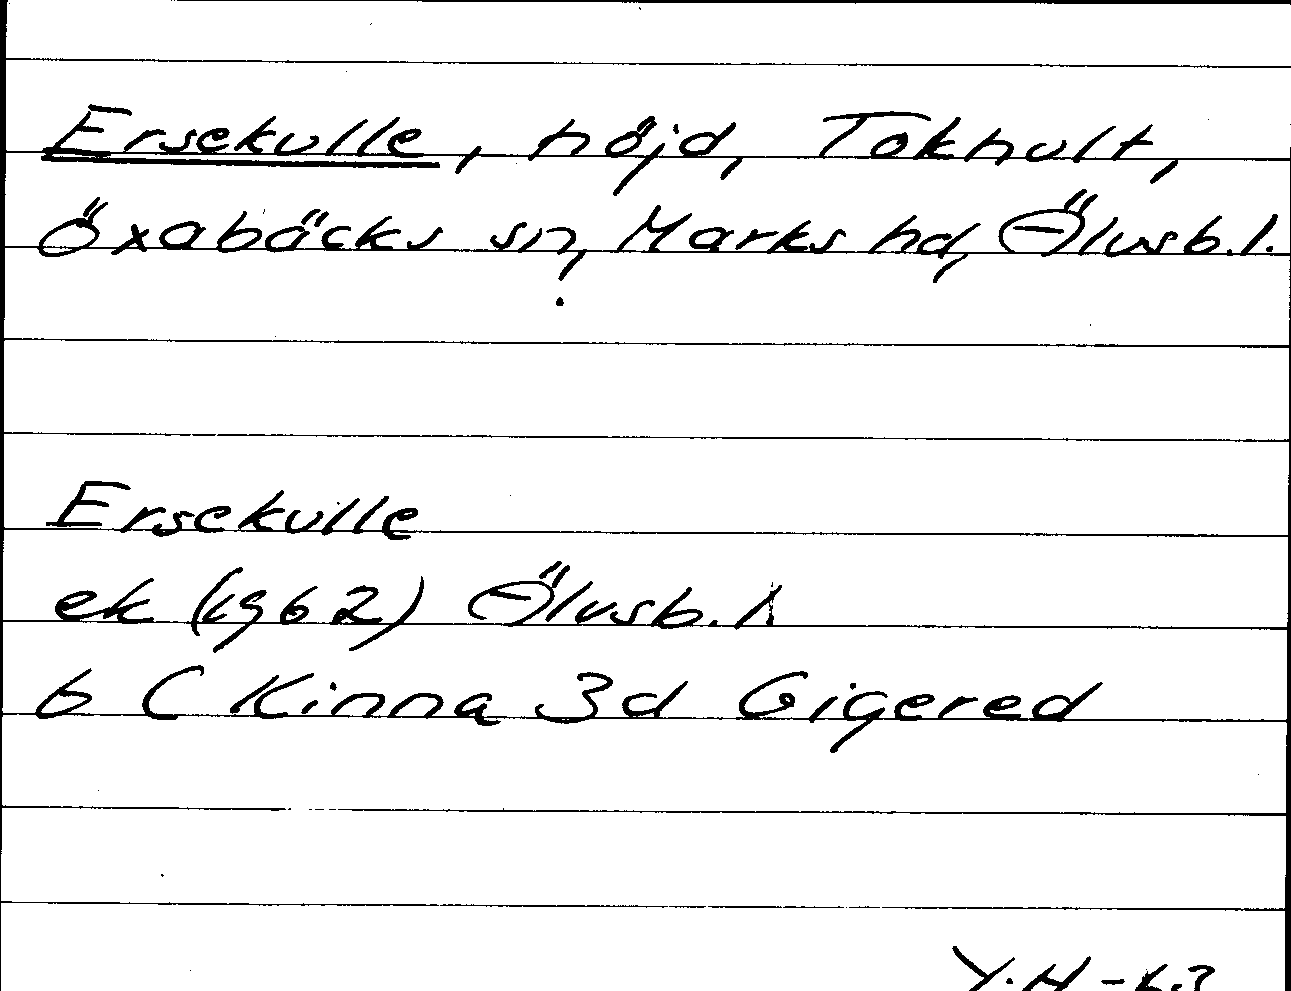 Ersekulle, höjd, Tokhult,
Öxabäcks sn, Marks hd, Älvsb. l.
Ersekulle
ek (1962) Älvsb. l.
6 C Kinna 3d Gigered